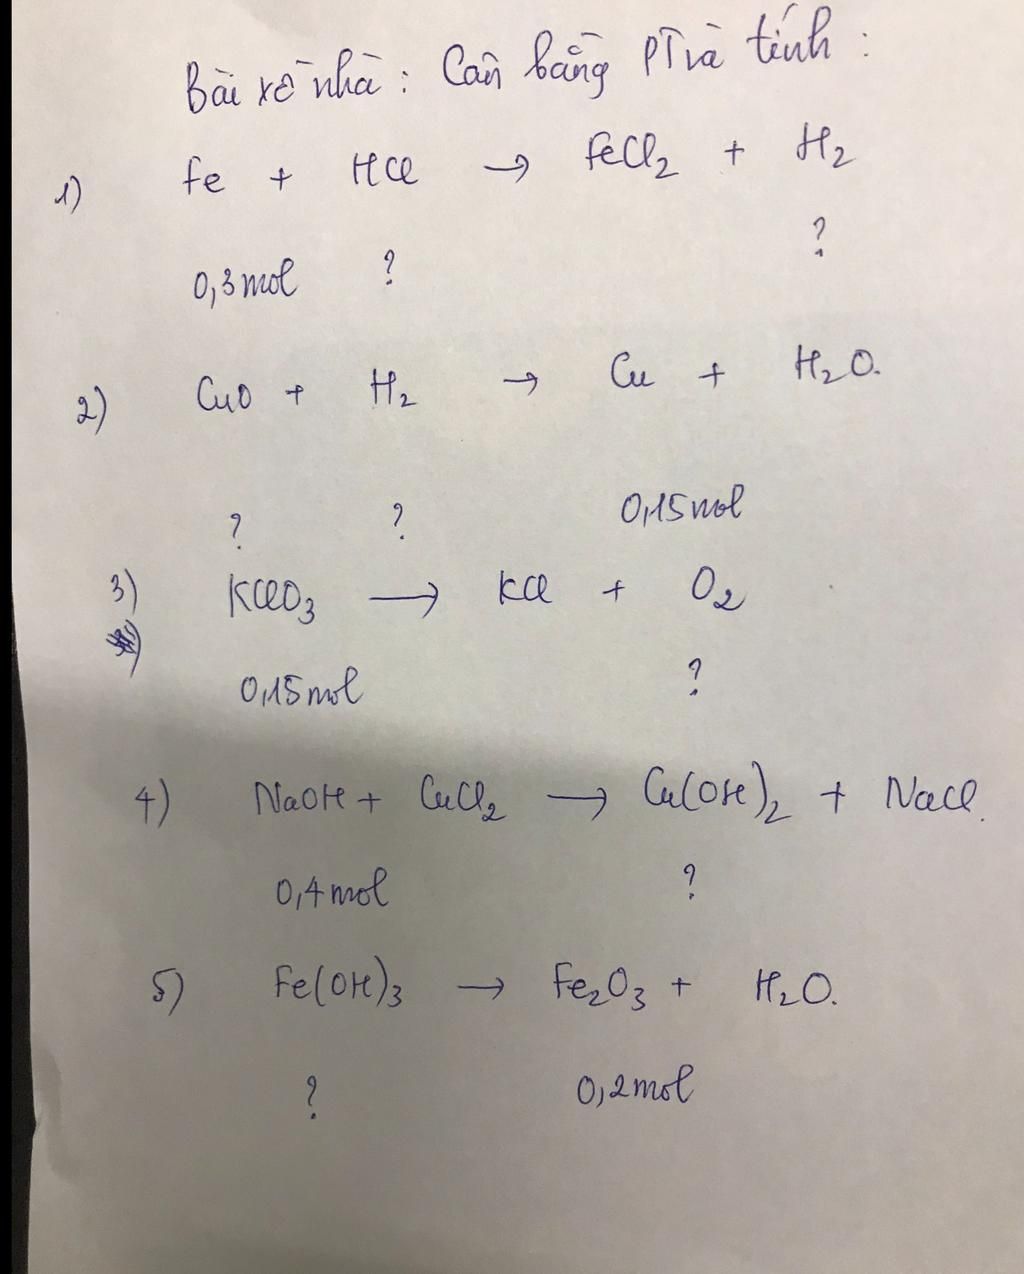 Bài về nhà : Cân bằng PT và tính :
1) Fe + HCl → FeCl₂ + H₂
0,3mol ? ?
2) CuO + H₂ → Cu + H₂O.
? ? 0,15mol
3) KClO₃ → KCl + O₂
0,15mol ?
4) NaOH + CuCl₂ → Cu(OH)₂ + NaCl.
0,4mol ?
5) Fe(OH)₃ → Fe₂O₃ + H₂O.
? 0,2mol